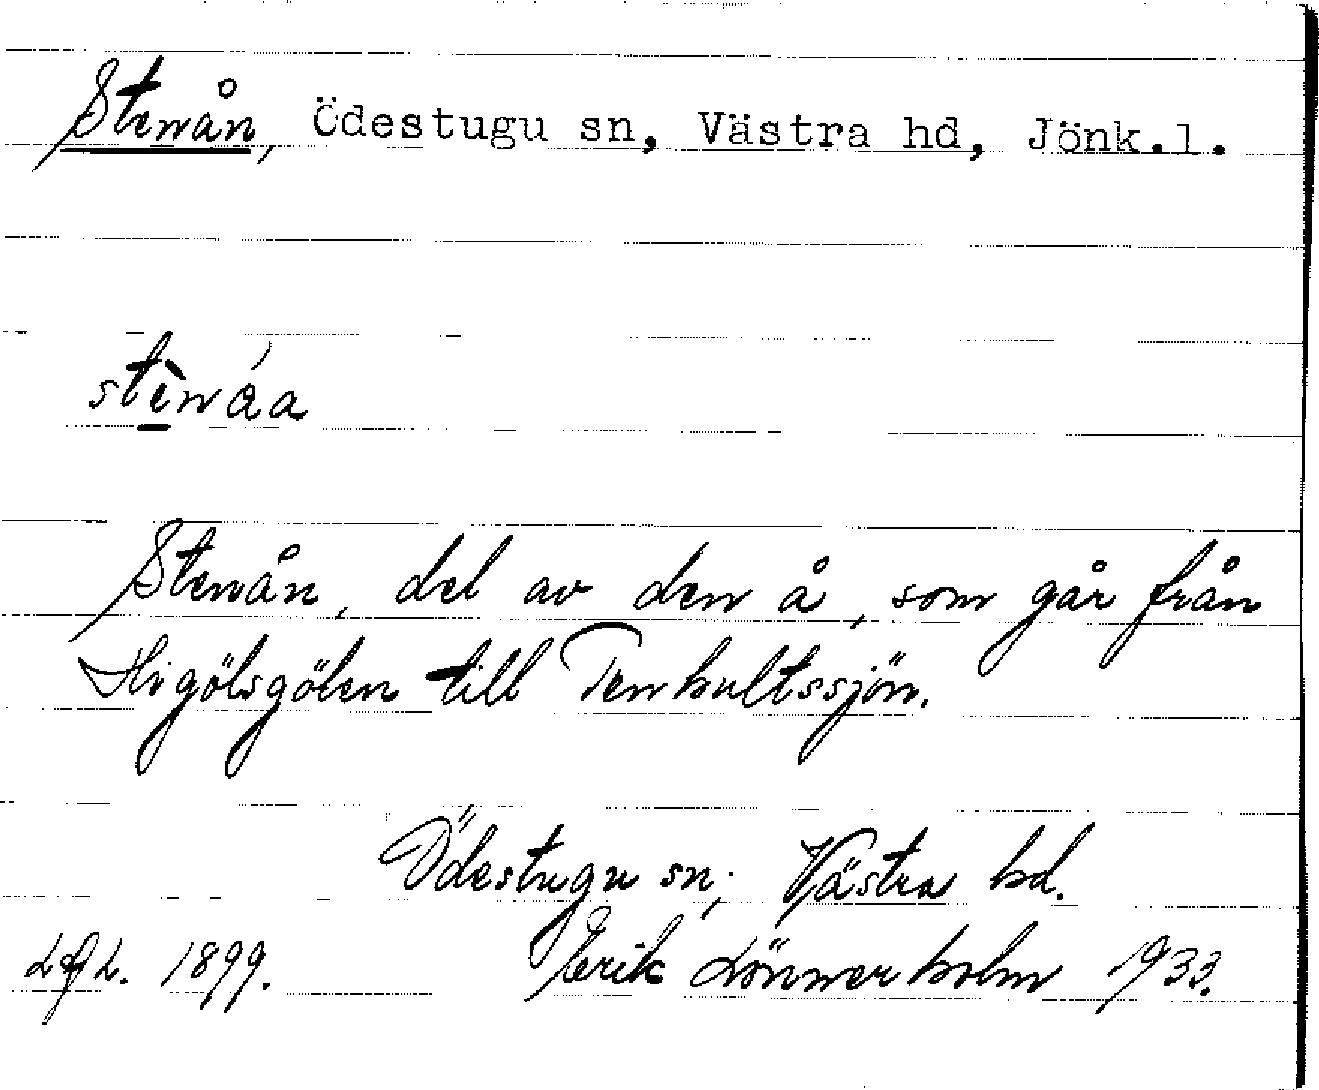 Stenån, Ödestugu sn, Västra hd, Jönk.l.
stè̱náa
Stenån, del av den å, som går från
Higölsgölen till Tenhultssjön.
Ödestugu sn; Västra hd.
1899. Erik Lönnerholm 1933.